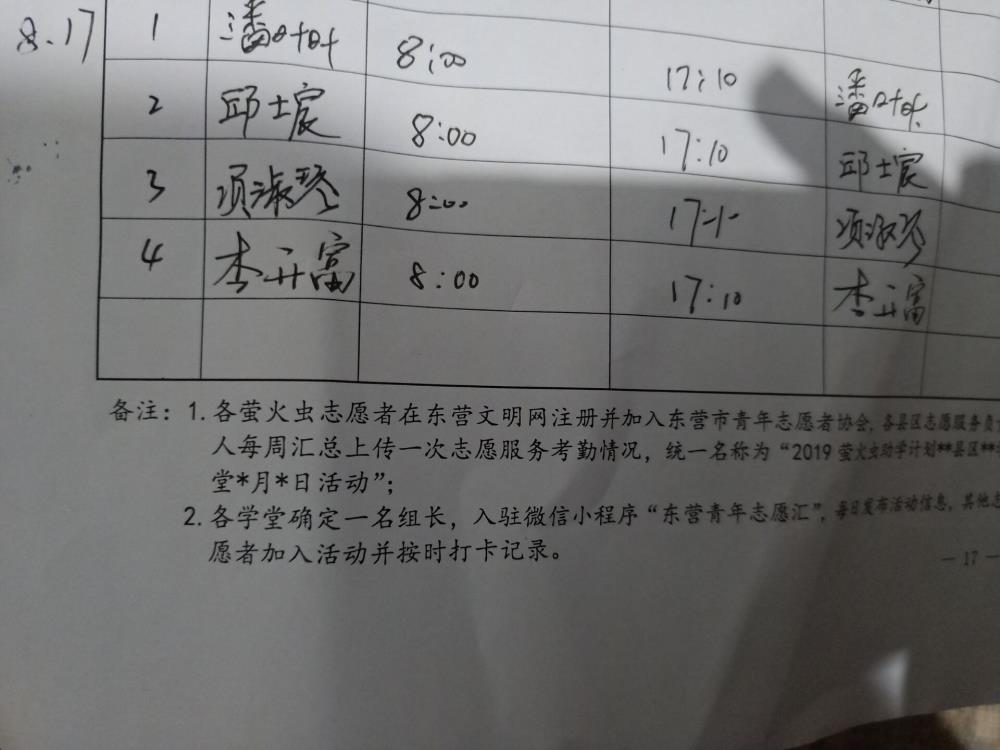 8.17
1 潘叶叶 8:00 17:10 潘叶叶
2 邱士宸 8:00 17:10 邱士宸
3 项淑琴 8:00 17:10 项淑琴
4 李开富 8:00 17:10 李开富
备注：1. 各萤火虫志愿者在东营文明网注册并加入东营市青年志愿者协会，各县区志愿服务负
人每周汇总上传一次志愿服务考勤情况，统一名称为“2019 萤火虫助学计划**县区**
堂*月*日活动”；
2. 各学堂确定一名组长，入驻微信小程序“东营青年志愿汇”，每日发布活动信息，其他志
愿者加入活动并按时打卡记录。
— 17 —